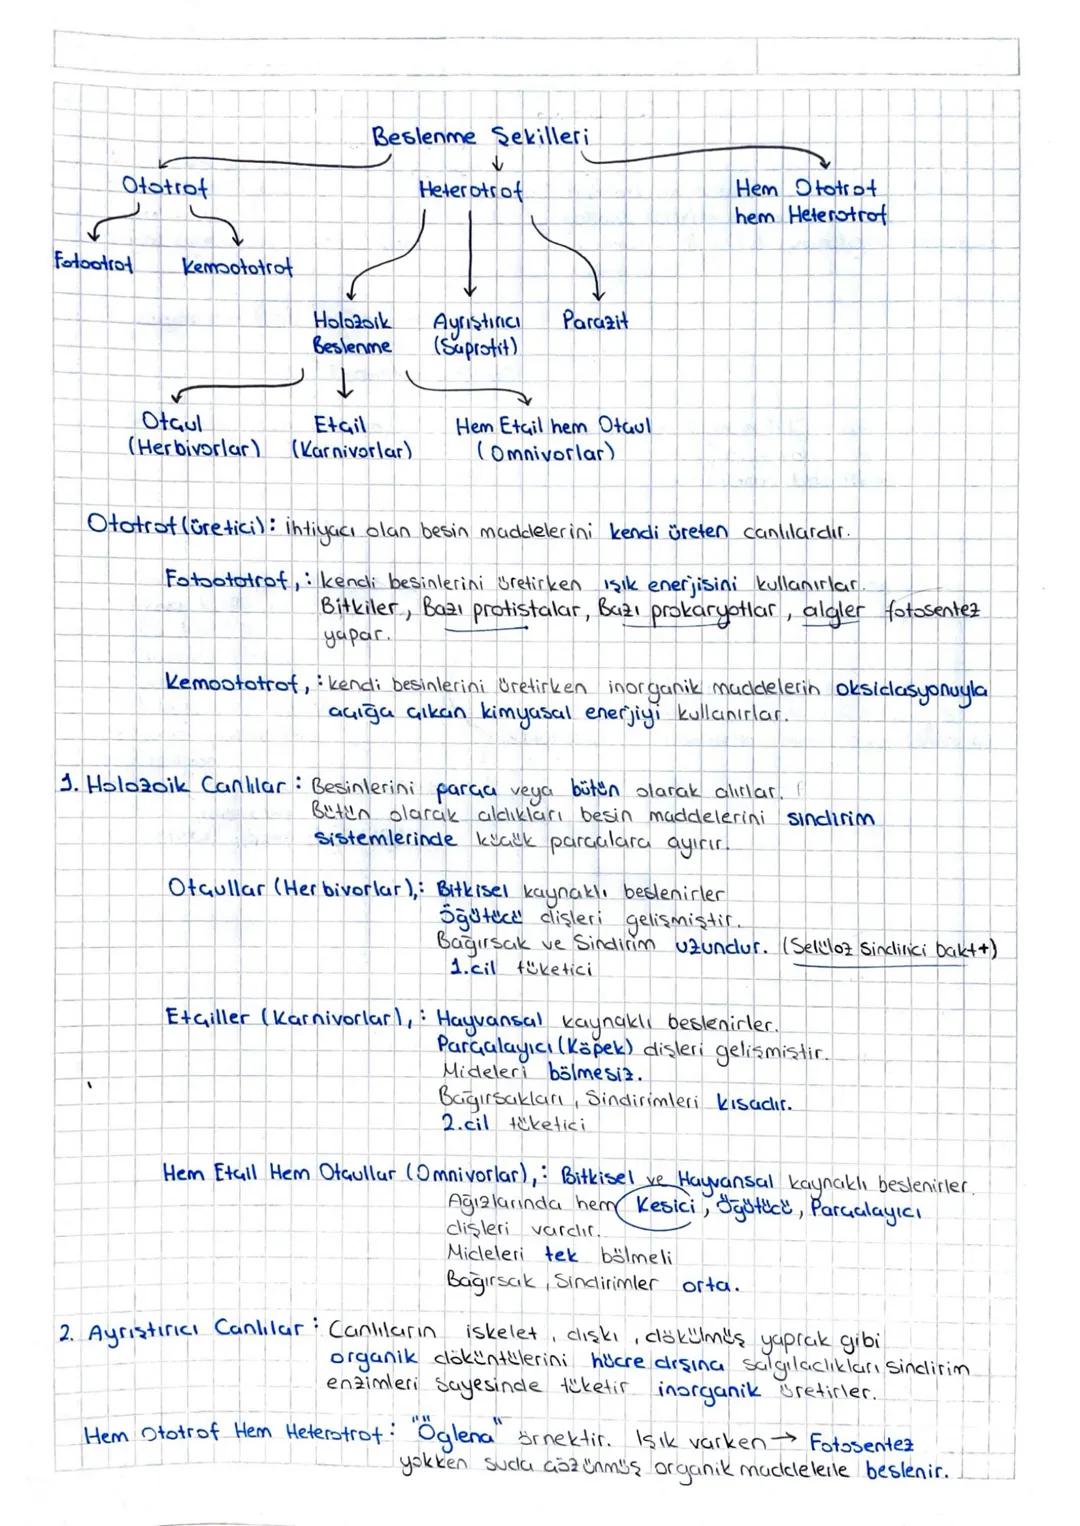 Beslenme Şekilleri
Ototrof
Heterotrof
Hem Ototrof
hem Heterotrof
Fotootrof
Kemoototrof
Holozoik
Beslenme
Ayrıştırıcı
(Saprofit)
Parazit
Otçul
(Herbivorlar)
Etçil
(Karnivorlar)
Hem Etçil hem Otçul
(Omnivorlar)
Ototrof (üretici): ihtiyacı olan besin maddelerini kendi üreten canlılardır.
Fotoototrof,: kendi besinlerini üretirken ışık enerjisini kullanırlar.
Bitkiler, Bazı protistalar, Bazı prokaryotlar, algler fotosentez
yapar.
Kemoototrof,: kendi besinlerini üretirken inorganik maddelerin oksidasyonuyla
açığa çıkan kimyasal enerjiyi kullanırlar.
1. Holozoik Canlılar: Besinlerini parça veya bütün olarak alırlar.
Bütün olarak aldıkları besin maddelerini sindirim
sistemlerinde küçük parçalara ayırır.
Otçullar (Herbivorlar),: Bitkisel kaynaklı beslenirler
Öğütücü dişleri gelişmiştir.
Bağırsak ve Sindirim uzundur. (Selüloz Sindirici bakt+)
1.cil tüketici
Etçiller (Karnivorlar),: Hayvansal kaynaklı beslenirler.
Parçalayıcı (Köpek) dişleri gelişmiştir.
Mideleri bölmesiz.
Bağırsakları, Sindirimleri kısadır.
2.cil tüketici
Hem Etçil Hem Otçullar (Omnivorlar),: Bitkisel ve Hayvansal kaynaklı beslenirler.
Ağızlarında hem Kesici, Öğütücü, Parçalayıcı
dişleri vardır.
Mideleri tek bölmeli
Bağırsak, Sindirimler orta.
2. Ayrıştırıcı Canlılar: Canlıların iskelet, dışkı, dökülmüş yaprak gibi
organik döküntülerini hücre dışına salgıladıkları sindirim
enzimleri sayesinde tüketir inorganik üretirler.
Hem Ototrof Hem Heterotrof: "Öglena" örnektir. Işık varken → Fotosentez
yokken suda çözünmüş organik maddelerle beslenir.